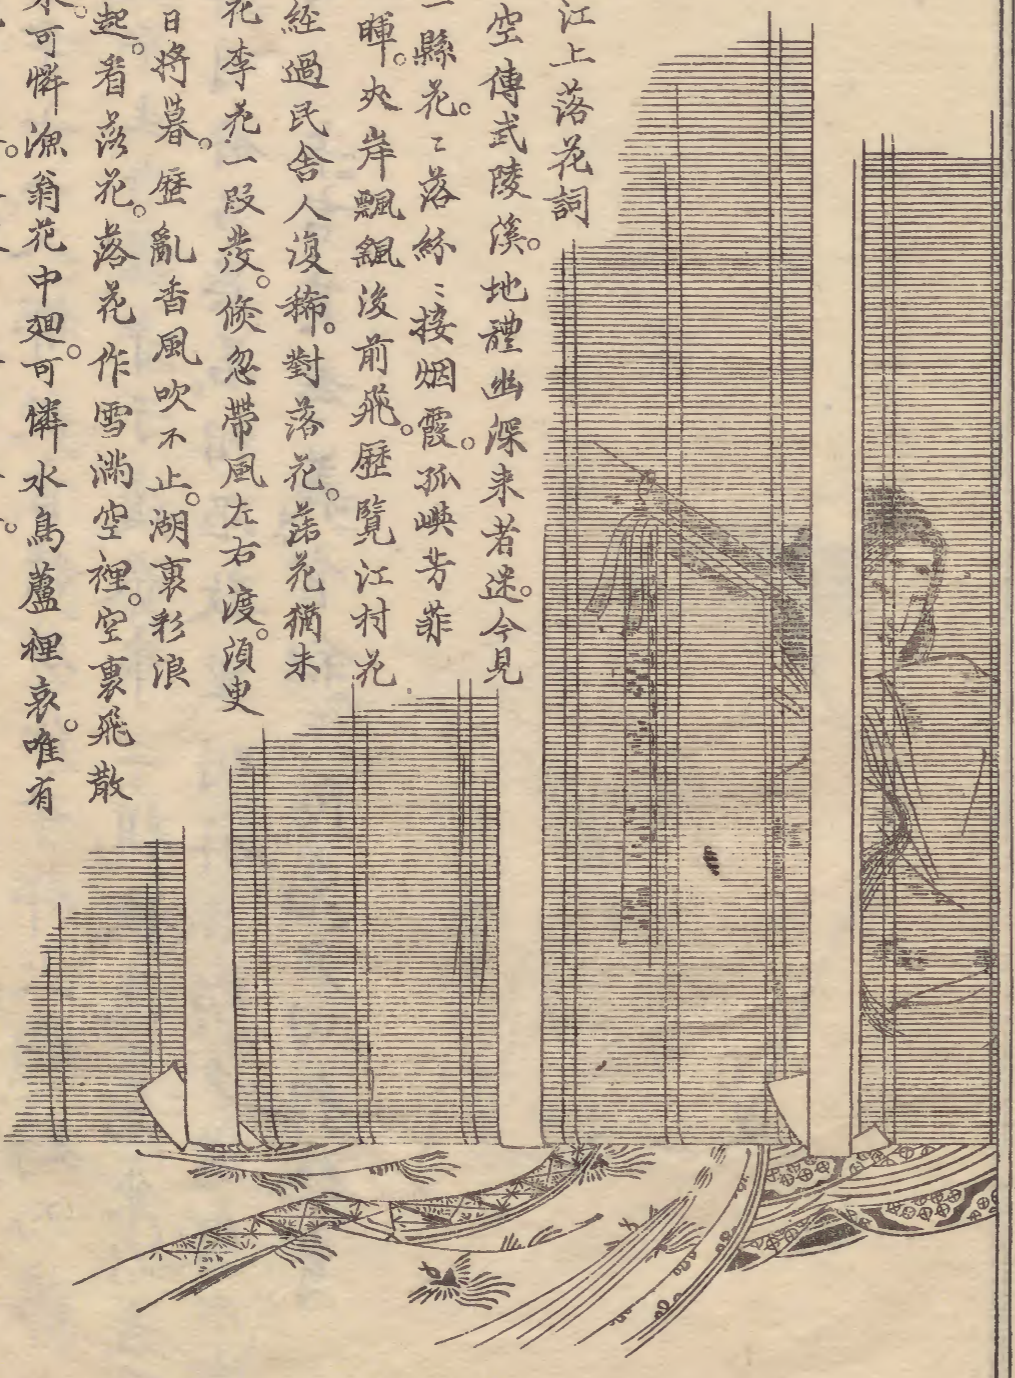 江上落花詞
空傳武陵溪。地禮幽深来者迷。今見
一縣花。〻落紛〻接烟霞。孤嶼芳菲
暉。夾岸飄颻後前飛。歴覽江村花
經過民舎人復稀。對落花。落花猶未
花李花一段發。倐忽帶風左右渡。須史
日將暮。歴亂香風吹不止。湖裏彩浪
起。看落花。落花作雪満空裡。空裏飛散
水可憐漁翁花中廻。可憐水鳥蘆裡哀。唯有